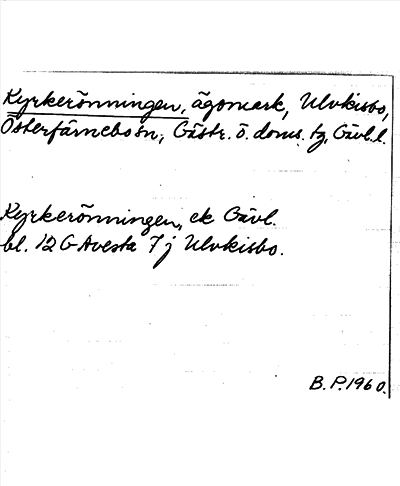 Kyrkerönningen, ägomark, Ulvkisbo,
Österfärnebo sn, Gästr. ö. doms. tg, Gävl. l.
Kyrkerönningen, ek Gävl.
bl. 12 G Avesta 7 j Ulvkisbo.
B. P. 1960.